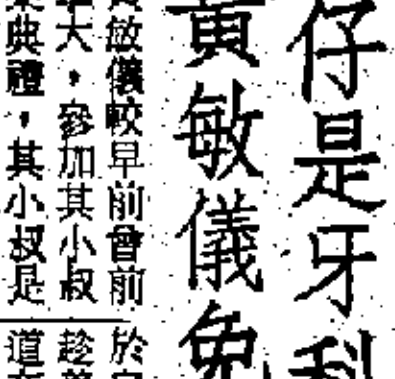 仔是牙科
黃敏儀免
敏儀較早前曾前
大，參加其小叔
典禮，其小叔是
於
趁
道